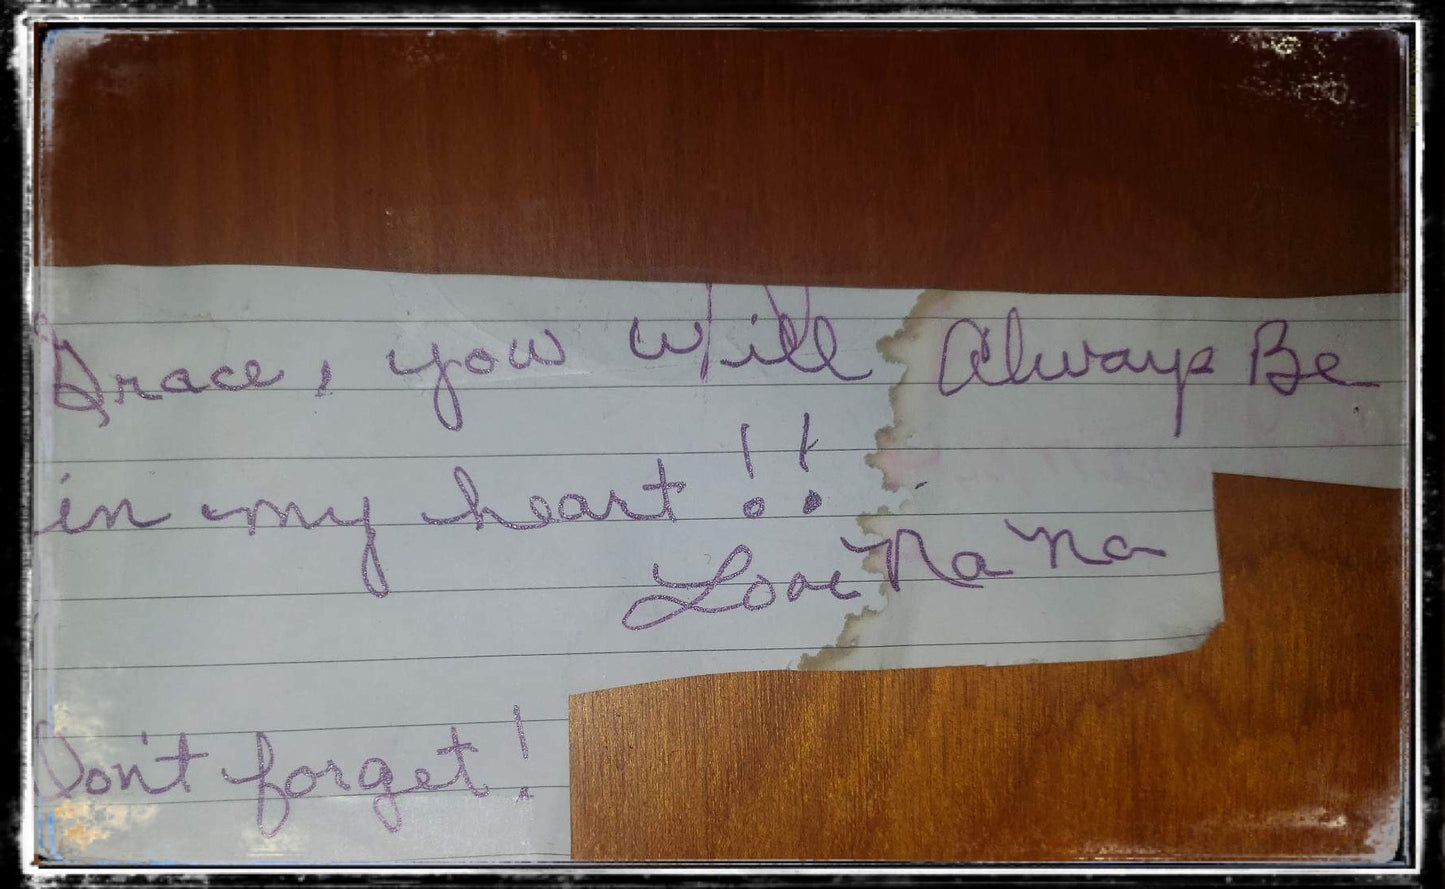 Grace, you will Always Be
in my heart!!
Love Na Na
Don't forget!